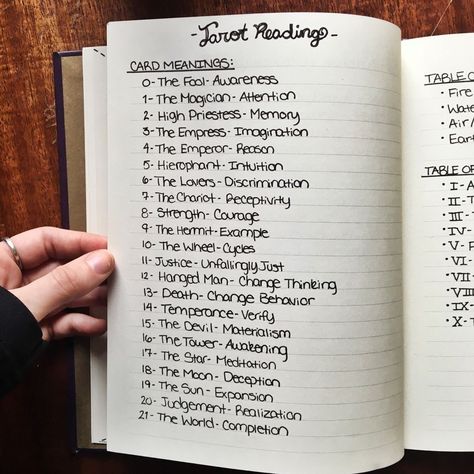 -Tarot Reading-
CARD MEANINGS:
0-The Fool-Awareness
1-The Magician-Attention
2-High Priestess-Memory
3-The Empress-Imagination
4-The Emperor-Reason
5-Hierophant-Intuition
6-The Lovers-Discrimination
7-The Chariot-Receptivity
8-Strength-Courage
9-The Hermit-Example
10-The Wheel-Cycles
11-Justice-Unfailingly Just
12-Hanged Man-Change Thinking
13-Death-Change Behavior
14-Temperance-Verify
15-The Devil-Materialism
16-The Tower-Awakening
17-The Star-Meditation
18-The Moon-Deception
19-The Sun-Expansion
20-Judgement-Realization
21-The World-Completion
TABLE
• Fire
• Wate
• Air/
• Eart
TABLE OF
• I-A
• II-T
• III-
• IV-
• V-
• VI-
• VII
• VIII
• IX-
• X-T